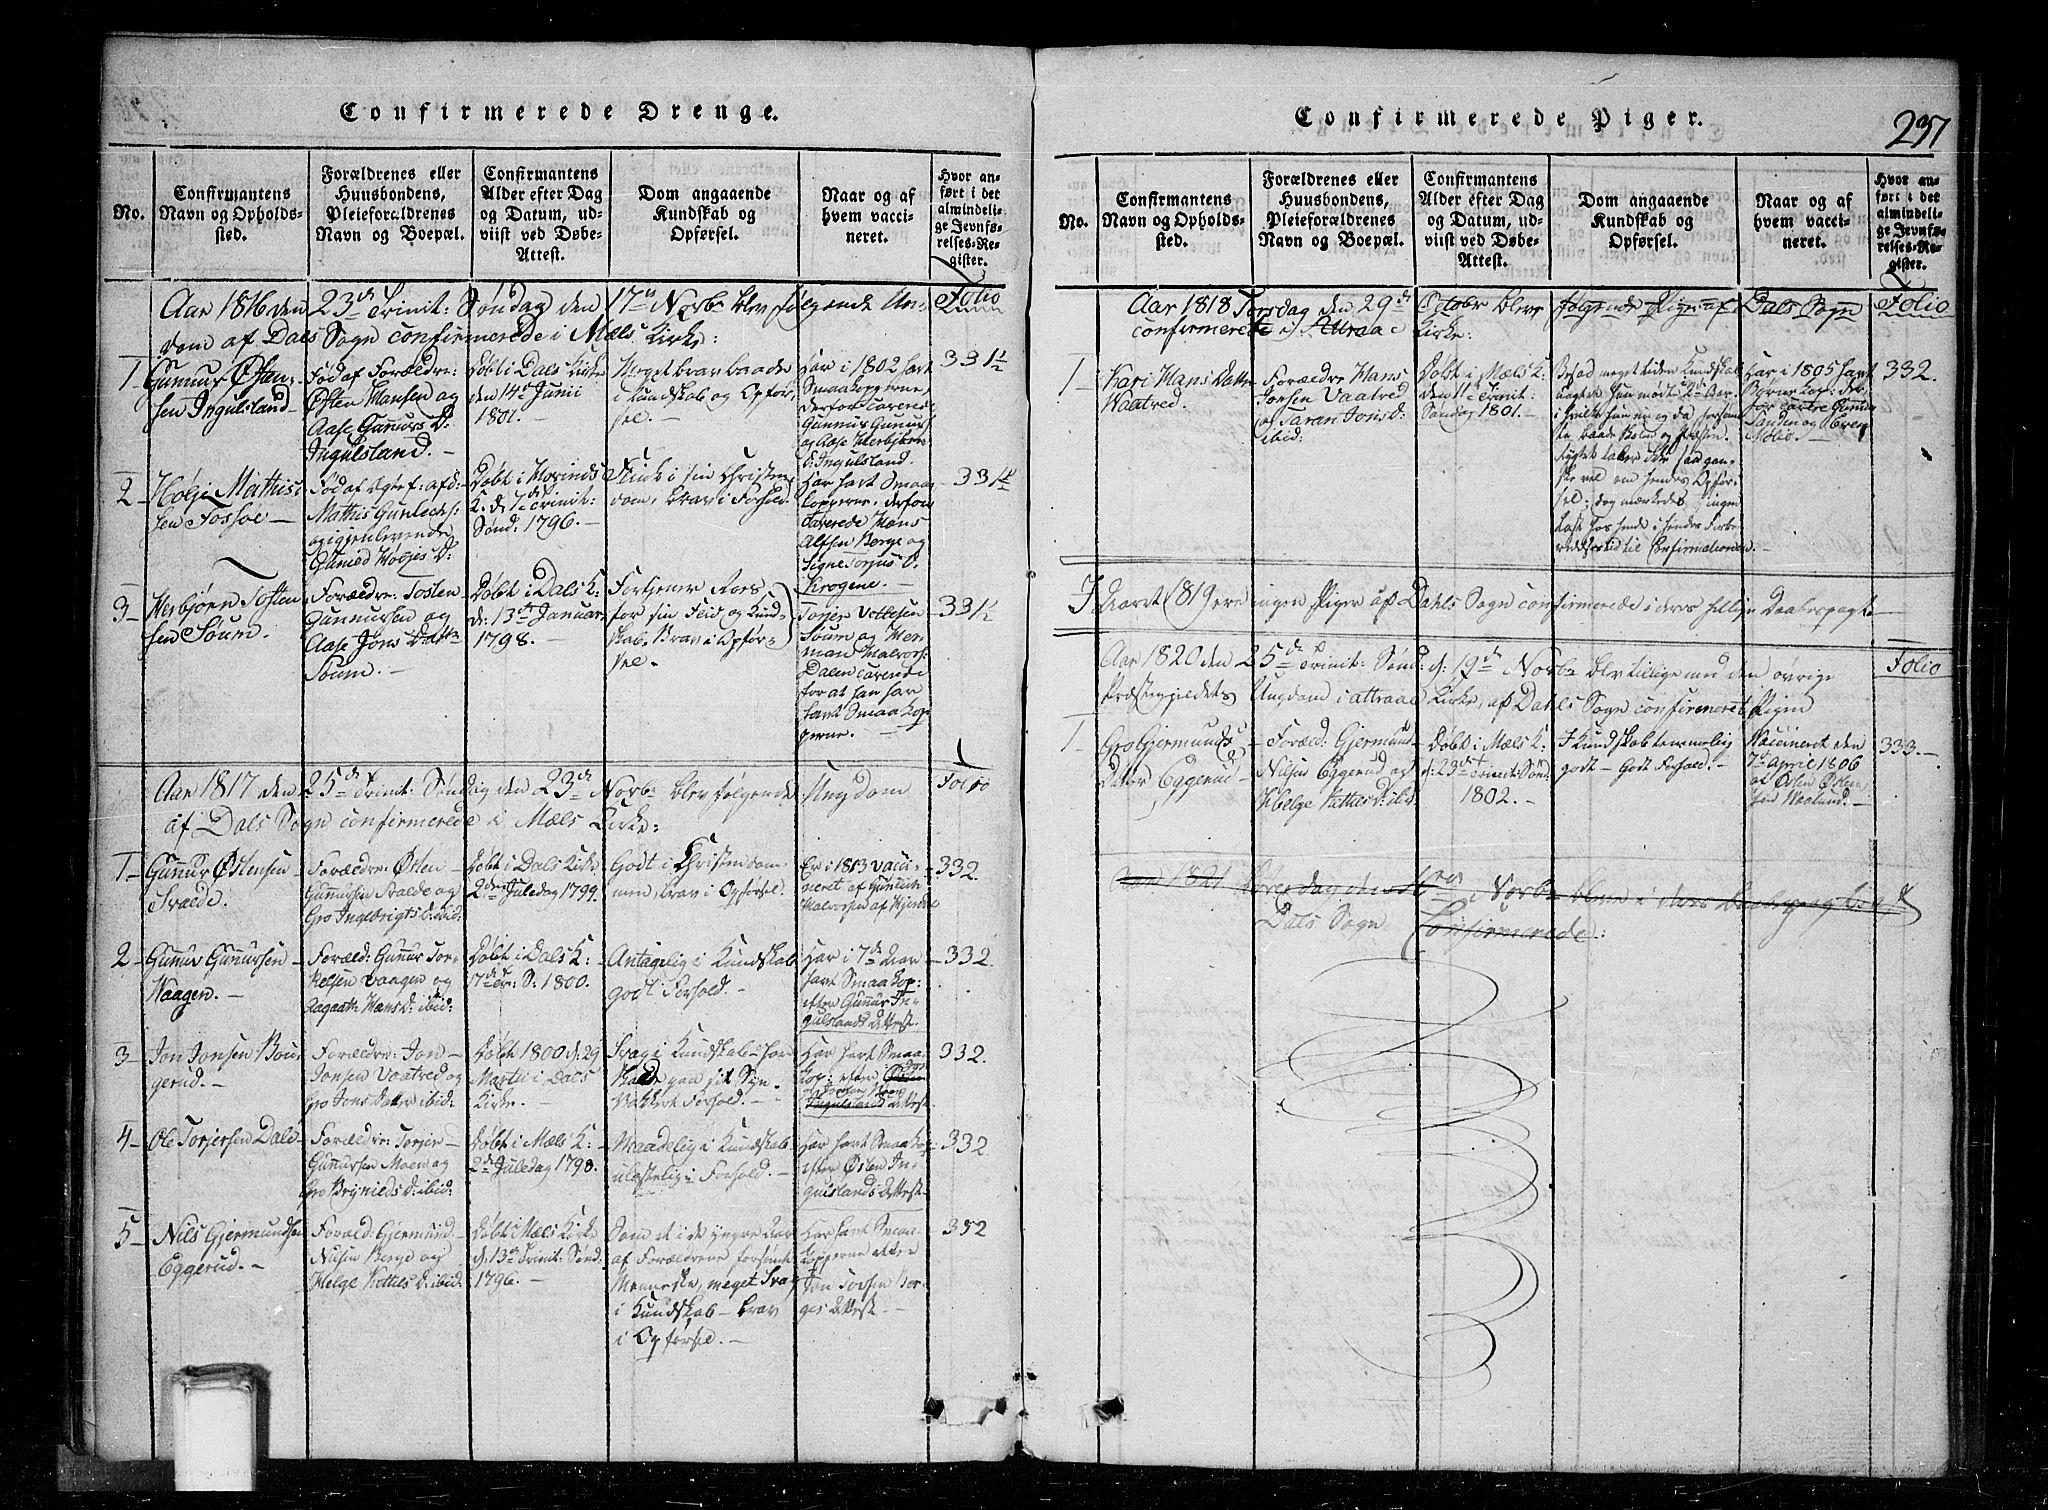 Confirmerede Drenge.
No.
Confirmantens
Navn og Opholds-
sted.
Forældrenes eller
Huusbondens,
Pleieforældrenes
Navn og Boepæl.
Confirmantens
Alder efter Dag
og Datum, ud-
viist ved Døbe-
Attest.
Dom angaaende
Kundskab og
Opførsel.
Naar og af
hvem vacci-
neret.
Hvor an-
ført i det
almindeli-
ge Jevnfø-
relses-Re-
gister.
Aar 1816 den 23de Trinit: Søndag den 17de Novbr blev følgende Un-
dom af Dals Sogn confirmerede i Mæls Kirke:
Folio
1
Gunnur Østen-
sen Ingulsland
Fød af Forældre:
Østen Hansen og
Aase Gunurs D:
Ingulsland.
Døbt i Dals Kirke
den 14de Junii
1801.
Meget brav baade
i Kundskab og Opfør-
sel.
Har i 1802 havt
Smaakopperne,
derfor caverede
Gunnur Gunurs:
og Aase Herbjørn
D. Ingulsland.
331½
2
Holje Mathis
sen Tossoe
Fød af Egtef: afd:
Mathis Gunlechs:
og igjenlevende
Gunied Holjes D:
Døbt i Hovinds
K. d: 7de Trinit:
Sønd: 1796.
Flink i sin Christen
dom, brav i Forhold
Har havt Smaa
kopperne, derfor
caverede Hans
Alfsen Berge og
Signe Torjus D.
Krogene.
331½
3
Herbjørn Tosten
sen Soum.
Forældre: Tosten
Gunnursen og
Aase Jøns Datter
Soum.
Døbt i Dals K:
d: 13de Januar
1798.
Fortjener Roes
for sin Fliid og Kund
skab. Brav i Opfør-
sel.
Torjer Vettesen
Soum og Her-
man Halvors:
Dalen caverede
for at han har
havt Smaakop
perne.
331½
Aar 1817 den 25de Trinit: Søndag den 23de Novbr blev følgende Ungdom
af Dals Sogn confirmerede i Mæls Kirke:
Folio
1
Gunnur Østensen
Svaede.
Forældre: Østen
Gunnursen Aalde og
Gro Ingebrigts D: ibid:
Døbt i Dals Kirke
2den Juledag 1799.
Godt i Christendom-
men, brav i Opførsel.
Er i 1813 vacci-
neret af Gunleik
Halvorsen af Hjerdal
332.
2
Gunur Gunursen
Waagen.
Foræld: Gunur Tor-
kelsen Vaagen og
Aagaath Hans D: ibid:
Døbt i Dals K:
7de Tr: S: 1800.
Antagelig i Kundskab
godt i Forhold.
Har i 7de Aar
havt Smaakop:
efter Gunur In-
gulslands Attest.
332.
3
Jon Jonsen Bou-
gerud.
Forældre: Jon
Jonsen Vaatred og
Gro Jons Datter ibid:
Døbt 1800 d: 29
Martii i Dals
Kirke.
Svag i Kundskab har
paa sit Syn
Forhold.
Har havt Smaa-
kop: efter
Ingulslands Attest.
332.
4
Ole Torjersen Dale
Forældre: Torjer
Gunursen Moen og
Gro Brynields D: ibid:
Døbt i Mæls K:
2de Juledag 1798.
Maadelig i Kundskab
ulastelig i Forhold.
Har havt Smaakop
efter Østen In-
gulslands Attest.
332
5
Nils Gjermundsen
Eggerud.
Foræld: Gjermund
Nilsen Berge og
Helge Kettils D: ibid:
Døbt i Mæls Kirke
d: 13de Trinit: Sønd:
1796.
Som et i de yngre Aar
af Forældrene forsømt
Menneske, meget svag
i Kundskab – brav
i Opførsel.
Har havt Smaa-
kopperne efter
Jon Torsen Ber-
ges Attest.
332
Confirmerede Piger.
237
No.
Confirmantens
Navn og Opholds-
sted.
Forældrenes eller
Huusbondens,
Pleieforældrenes
Navn og Boepæl.
Confirmantens
Alder efter Dag
og Datum, ud-
viist ved Døbe-
Attest.
Dom angaaende
Kundskab og
Opførsel.
Naar og af
hvem vacci-
neret.
Hvor an-
ført i det
almindeli-
ge Jevnfø-
relses-Re-
gister.
Aar 1818 Torsdag den 29de October blev følgende Piger af Dals Sogn
confirmerede i Attraae Kirke:
Folio
1
Kari Hans Datter
Waatred.
Forældre Hans
Jonsen Vaatred
og Saran Jons D:
ibid:
Døbt i Mæls K:
den 11te Trinit:
Søndag 1801.
Besad meget liden Kundskab
uagtet hun mødte 2de Aar
i hvilke hun nu og da forsøm-
te baade Skolen og Præsten.
Rygtet taler ikke saa gan-
ske vel om hendes Opfør-
sel; dog mærkedes ingen
Last hos hende i hendes Forbe-
redelsestid til Confirmationen.
Har i 1805 havt
Børnekop: der-
for cavere Gunur
Sanden og Even
Molid.
332.
I Aaret 1819 ere ingen Piger af Dahls Sogn confirmerede i deres hellige Daabespagt
Aar 1820 den 25de Trinit: Sønd: d: 19de Novbr blev tillige med den øvrige
Præstegjeldets Ungdom i Attraae Kirke, af Dahls Sogn confirmeret Pigen
Folio
1
Gro Gjermunds
Datter Eggerud
Foræld: Gjermund
Nilsen Eggerud og
Helge Kettils D: ibid:
Døbt i Mæls K:
d: 23de Trinit: Sønd:
1802.
I Kundskab temmelig
godt – Godt Forhold.
Vaccineret den
7de April 1806
af Østen Østen-
sen Waalund.
333.
Aar 1821 i Novbr bleve i deres Daabespagt
Dals Sogn Confirmerede: